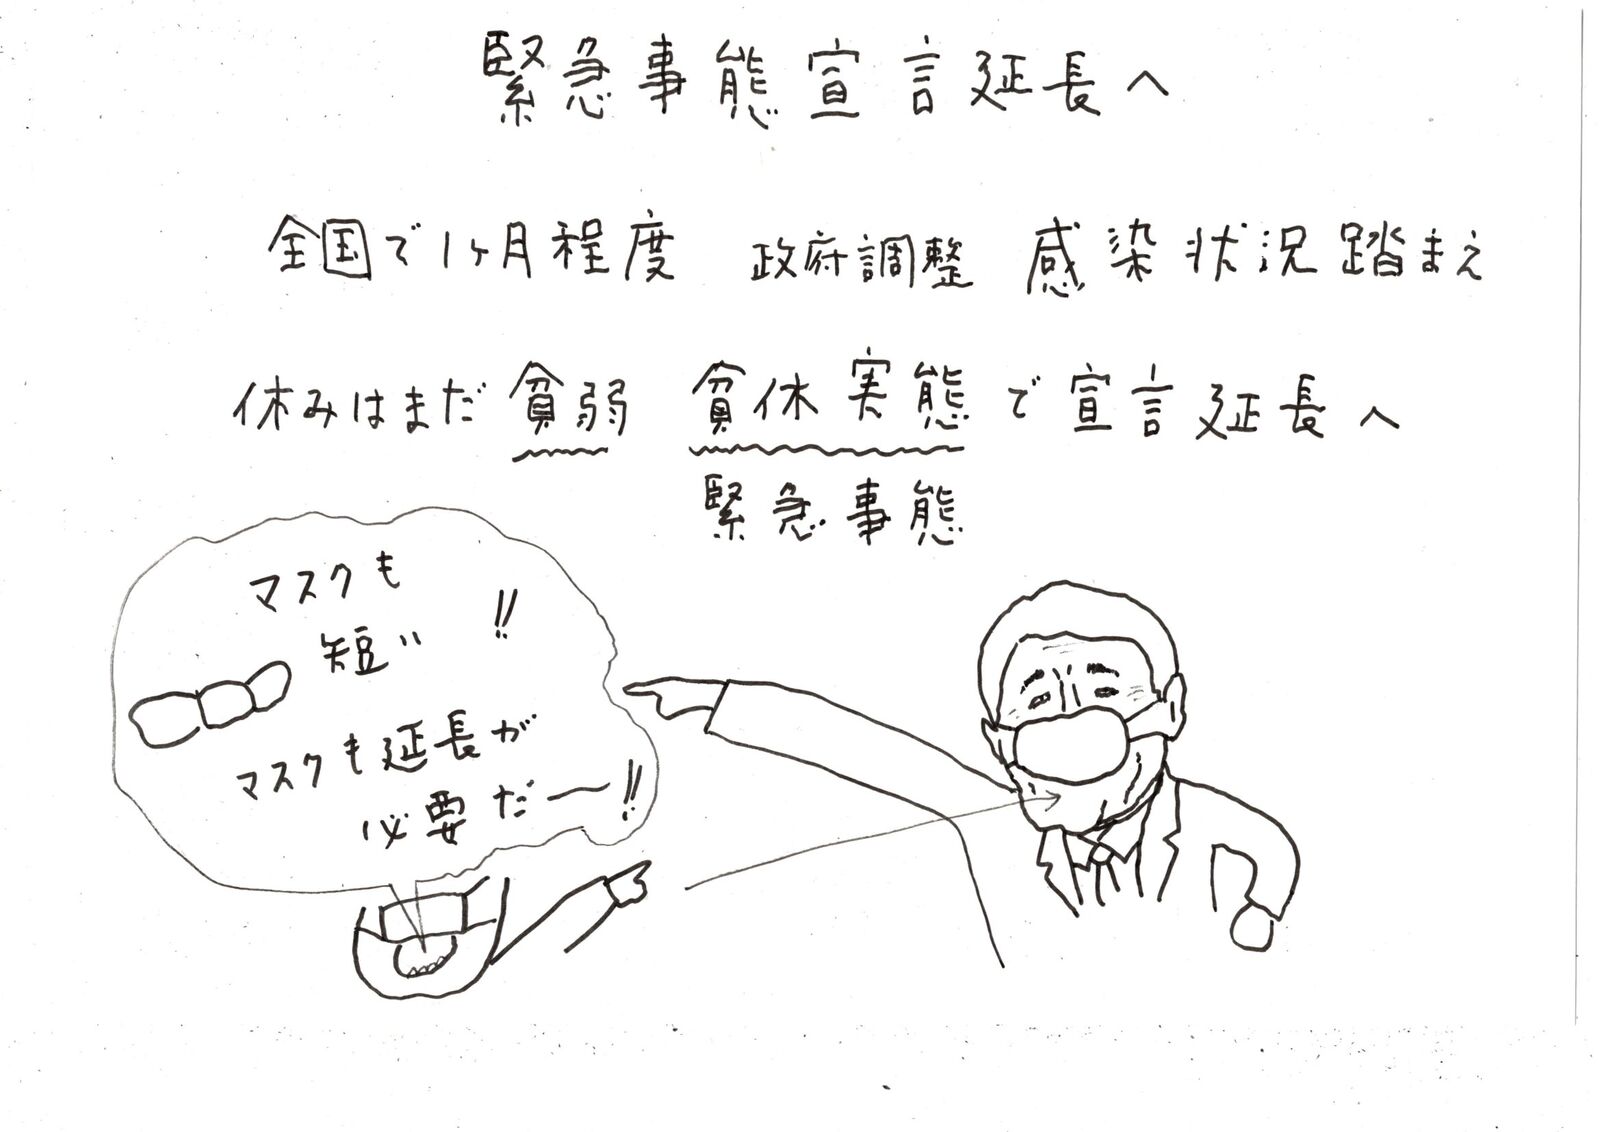 緊急事態宣言延長へ
全国で1ヶ月程度 政府調整 感染状況踏まえ
休みはまだ貧弱 貧休実態で宣言延長へ
緊急事態
マスクも
短い!!
マスクも延長が
必要だー!!